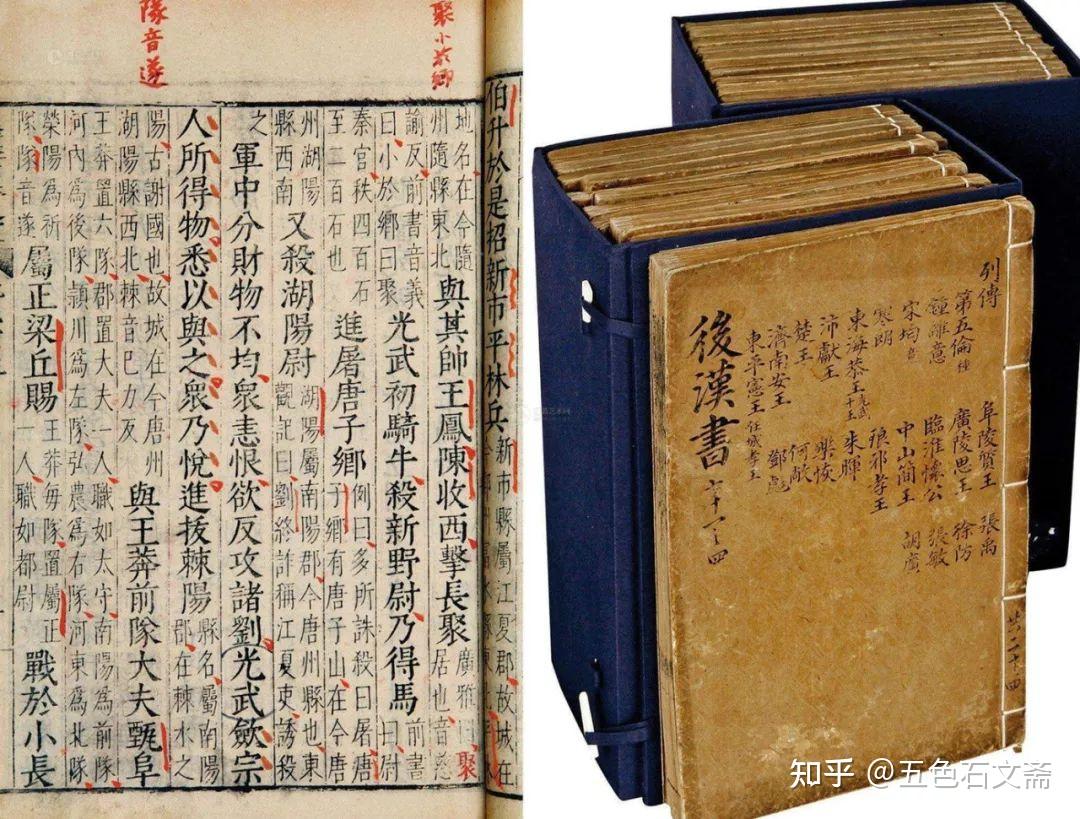 聚小於鄉
隊音遂
伯升於是招新市平林兵新市縣屬江夏郡故城在
地名在今隨
州隨縣東北
與其帥王鳳陳收西擊長聚
廣雅曰聚
居也音慈
諭反前書音義
曰小於鄉曰聚
光武初騎牛殺新野尉乃得馬
前書
曰尉
秦官秩四百石
至二百石也
進屠唐子鄉
例曰多所誅殺曰屠唐
子鄉有唐子山在今唐
州湖陽
縣西南
又殺湖陽尉
湖陽屬南陽郡今唐州縣也東
觀記曰劉終詐稱江夏吏誘殺
之
軍中分財物不均衆恚恨欲反攻諸劉光武斂宗
人所得物悉以與之衆乃悅進拔棘陽
縣名屬南陽
郡在棘水之
陽古謝國也故城在今唐州
湖陽縣西北棘音己力反
與王莽前隊大夫甄阜
王莽置六隊郡置大夫一人職如太守南陽為前隊
河內為後隊潁川為左隊弘農為右隊河東為北隊
滎陽為祈
隊隊音遂
屬正梁丘賜
王莽每隊置屬正
一人職如都尉
戰於小長
列傳
第五倫 阜陵質王 張禹
鍾離意 廣陵思王 徐防
宋均 臨淮懷公 張敏
寒朗 中山簡王 胡廣
東海恭王 琅邪孝王
沛獻王 朱暉
楚王 樂恢
濟南安王 何敞
東平憲王任城孝王 鄧彪
後漢書 六十一之四
共二十四
知乎 @五色石文斋